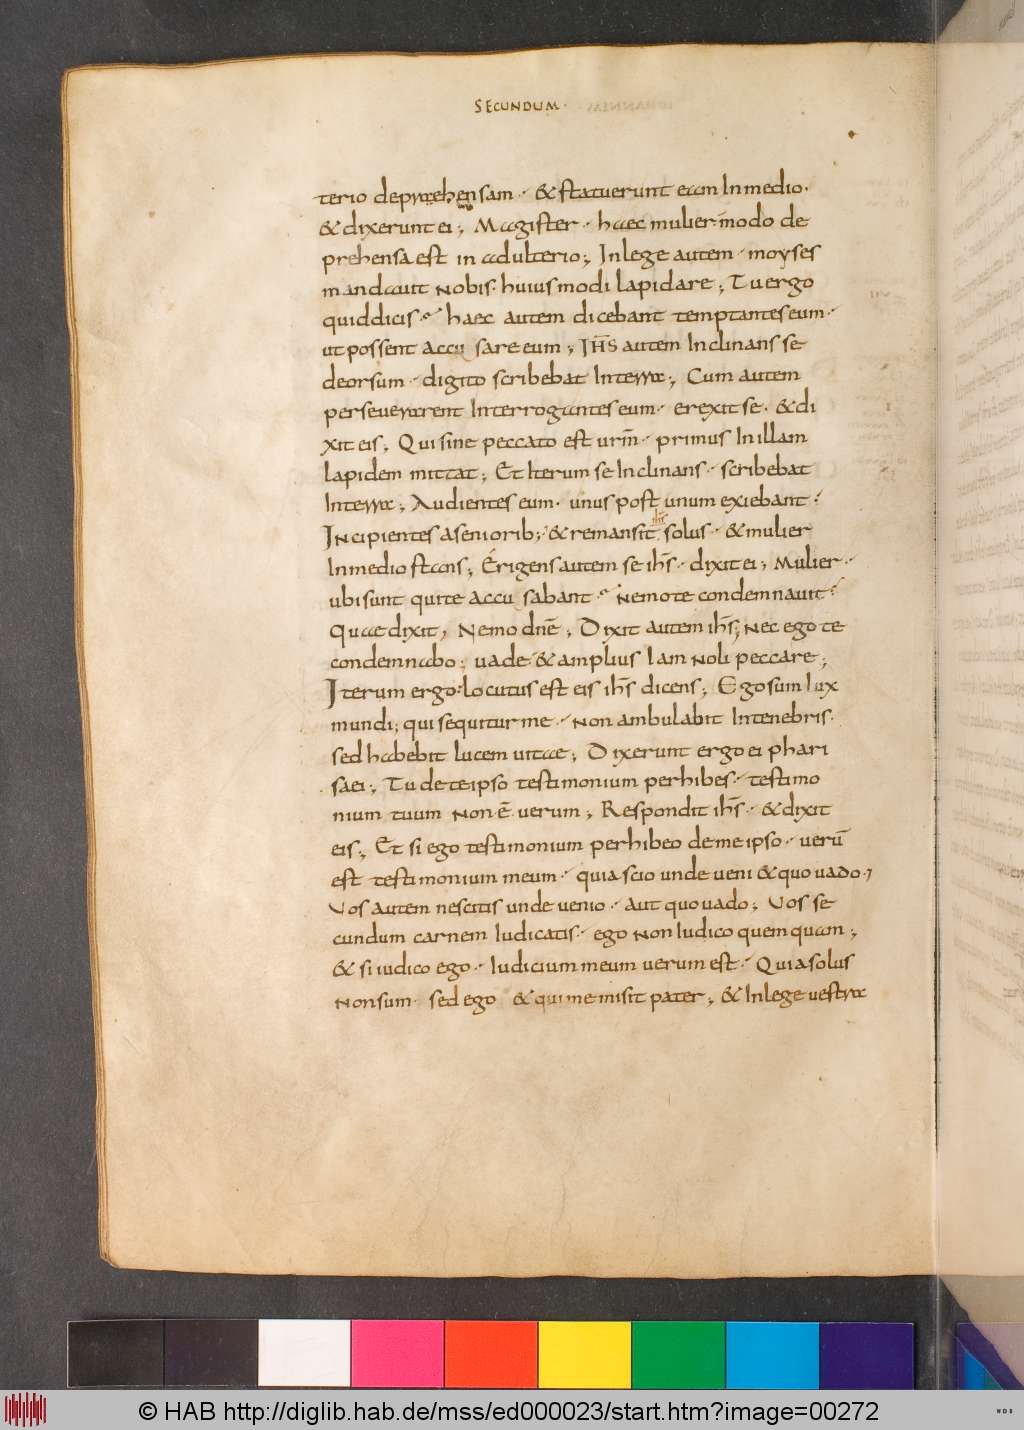 SECUNDUM·
terio deprehensam · & statuerunt eam In medio ·
& dixerunt ei ; Magister · haec mulier modo de
prehensa est in adulterio ; In lege autem · moyses
mandavit nobis · huius modi lapidare ; Tu ergo
quid dicis · haec autem dicebant temptantes eum ·
ut possent accu sare eum ; IH̅S autem Inclinans se
deorsum · digito scribebat In terra ; Cum autem
perseverarent Interrogantes eum · erexit se · & di
xit eis ; Qui sine peccato est urm̅ · primus In illam
lapidem mittat ; Et Iterum se Inclinans · scribebat
In terra ; Audientes eum · unus post unum exiebant ·
Incipientes a seniorib; · & remansit ih̅s solus · & mulier
In medio stans ; Erigens autem se ih̅s · dixit ei ; Mulier ·
ubi sunt qui te accu sabant · Nemo te condemnavit ·
Quae dixit , Nemo dn̅e ; Dixit autem ih̅s ; Nec ego te
condemnabo ; vade · & amplius Iam noli peccare ;
Iterum ergo · locutus est eis ih̅s dicens ; Ego sum lux
mundi ; qui sequitur me · non ambulabit In tenebris ·
sed habebit lucem vitae ; Dixerunt ergo ei phari
saei ; Tu de te ipso testimonium perhibes · testimo
nium tuum non e̅ verum ; Respondit ih̅s · & dixit
eis ; Et si ego testimonium perhibeo de me ipso · veru̅
est testimonium meum · quia scio unde veni & quo vado ·
Vos autem nescitis unde venio · aut quo vado ; Vos se
cundum carnem Iudicatis · ego non Iudico quemquam ;
& si iudico ego · Iudicium meum verum est · Quia solus
non sum · sed ego & qui me misit pater ; & In lege vestra
© HAB http://diglib.hab.de/mss/ed000023/start.htm?image=00272
WDB